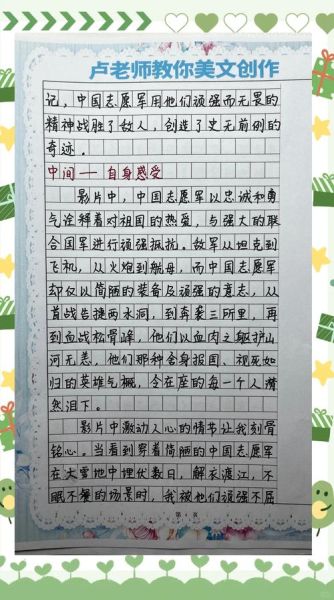 卢老师教你美文创作
记，中国志愿军用他们顽强而无畏的
精神战胜了敌人，创造了史无前例的
奇迹。
中间——自身感受
影片中，中国志愿军以忠诚和勇
气诠释着对祖国的热爱，与强大的联
合国军进行顽强抵抗。敌军从坦克到
飞机，从火炮到航母，而中国志愿军
却仅以简陋的装备及顽强的意志，从
首战告捷两水洞，到奔袭三所里，再
到血战松骨峰，他们以血肉之躯护山
河无恙，他们那种舍身报国、视死如
归的英雄气概，令在座的每一个人潸
然泪下。
影片中激动人心的情节让我刻骨
铭心。当看到穿着简陋的中国志愿军
在大雪地中埋伏数日，解衣渡江，不
眠不休的场景时，我被他们顽强不屈